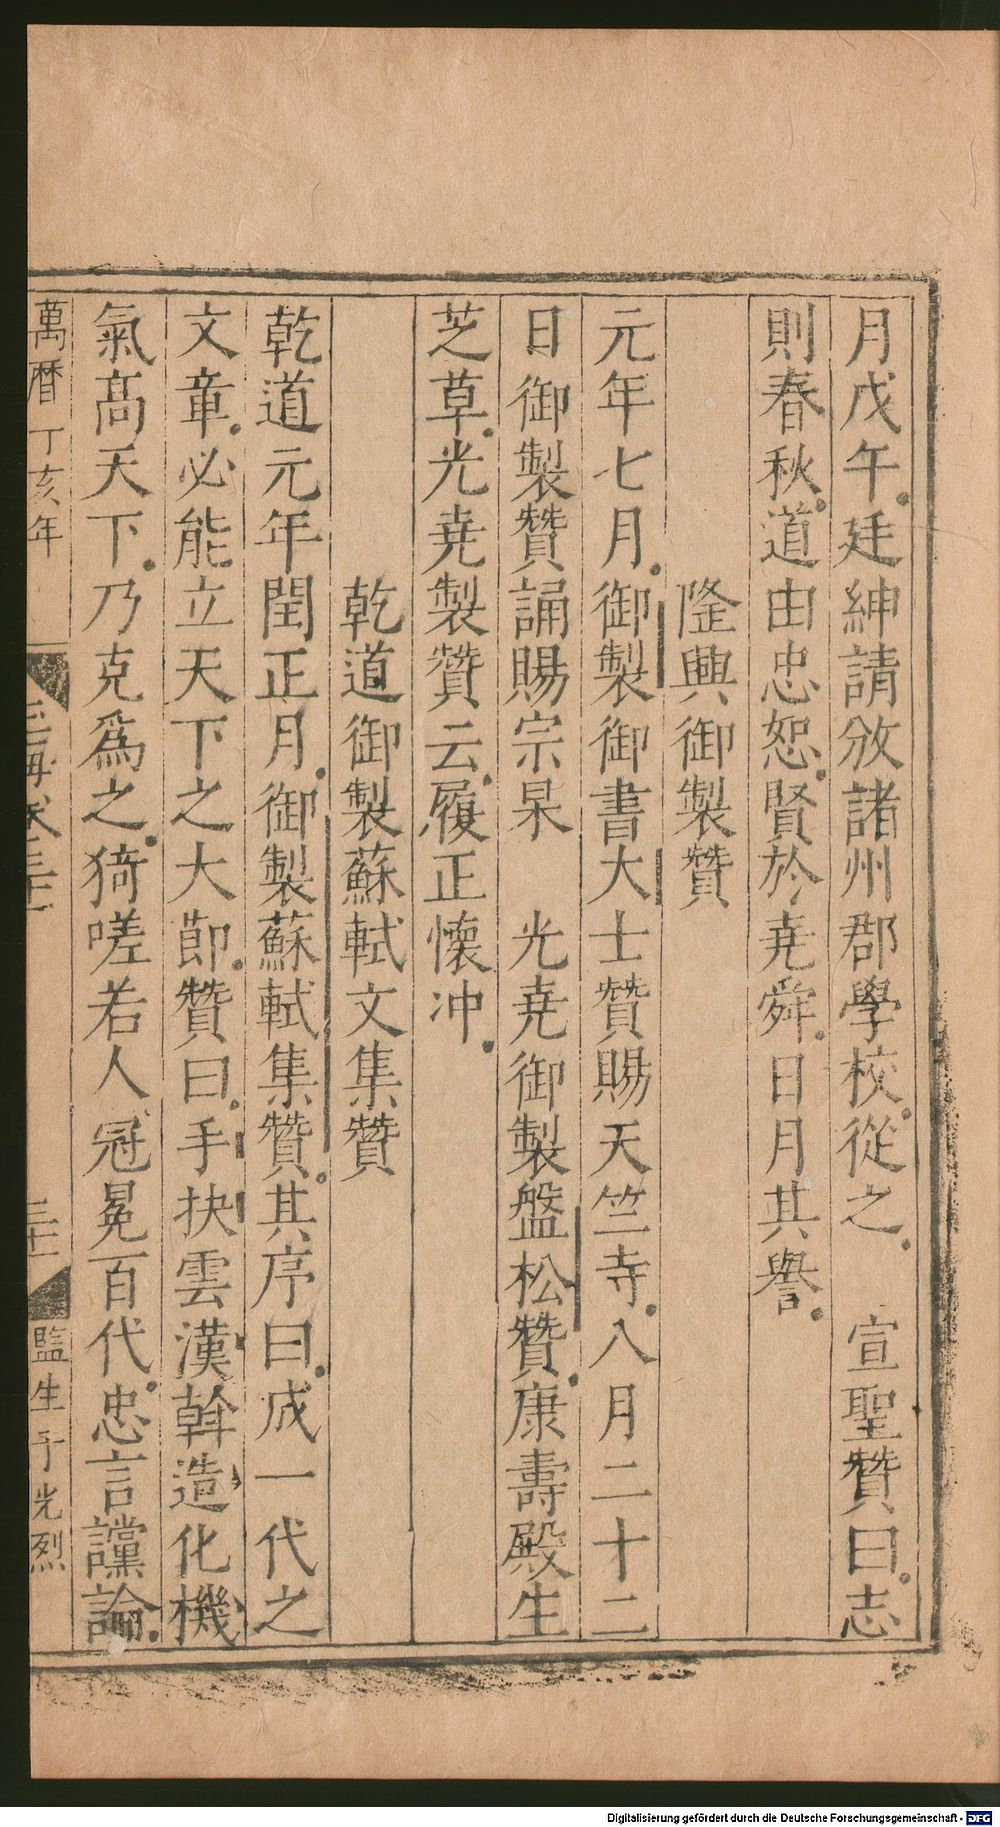 月戊午廷紳請放諸州郡學校從之　宣聖贊曰志
則春秋道由忠恕賢於尭舜日月其譽
隆興御製贊
元年七月御製御書大士贊賜天竺寺八月二十二
日御製贊誦賜宗杲　光尭御製盤松贊康壽殿生
芝草光尭製贊云履正懷冲
乾道御製蘇軾文集贊
乾道元年閏正月御製蘇軾集贊其序曰成一代之
文章必能立天下之大節贊曰手抉雲漢斡造化機
氣高天下乃克爲之猗嗟若人冠冕百代忠言讜論
萬曆丁亥年
玉海卷三十一
三十一
監生于光烈
Digitalisierung gefördert durch die Deutsche Forschungsgemeinschaft - DFG